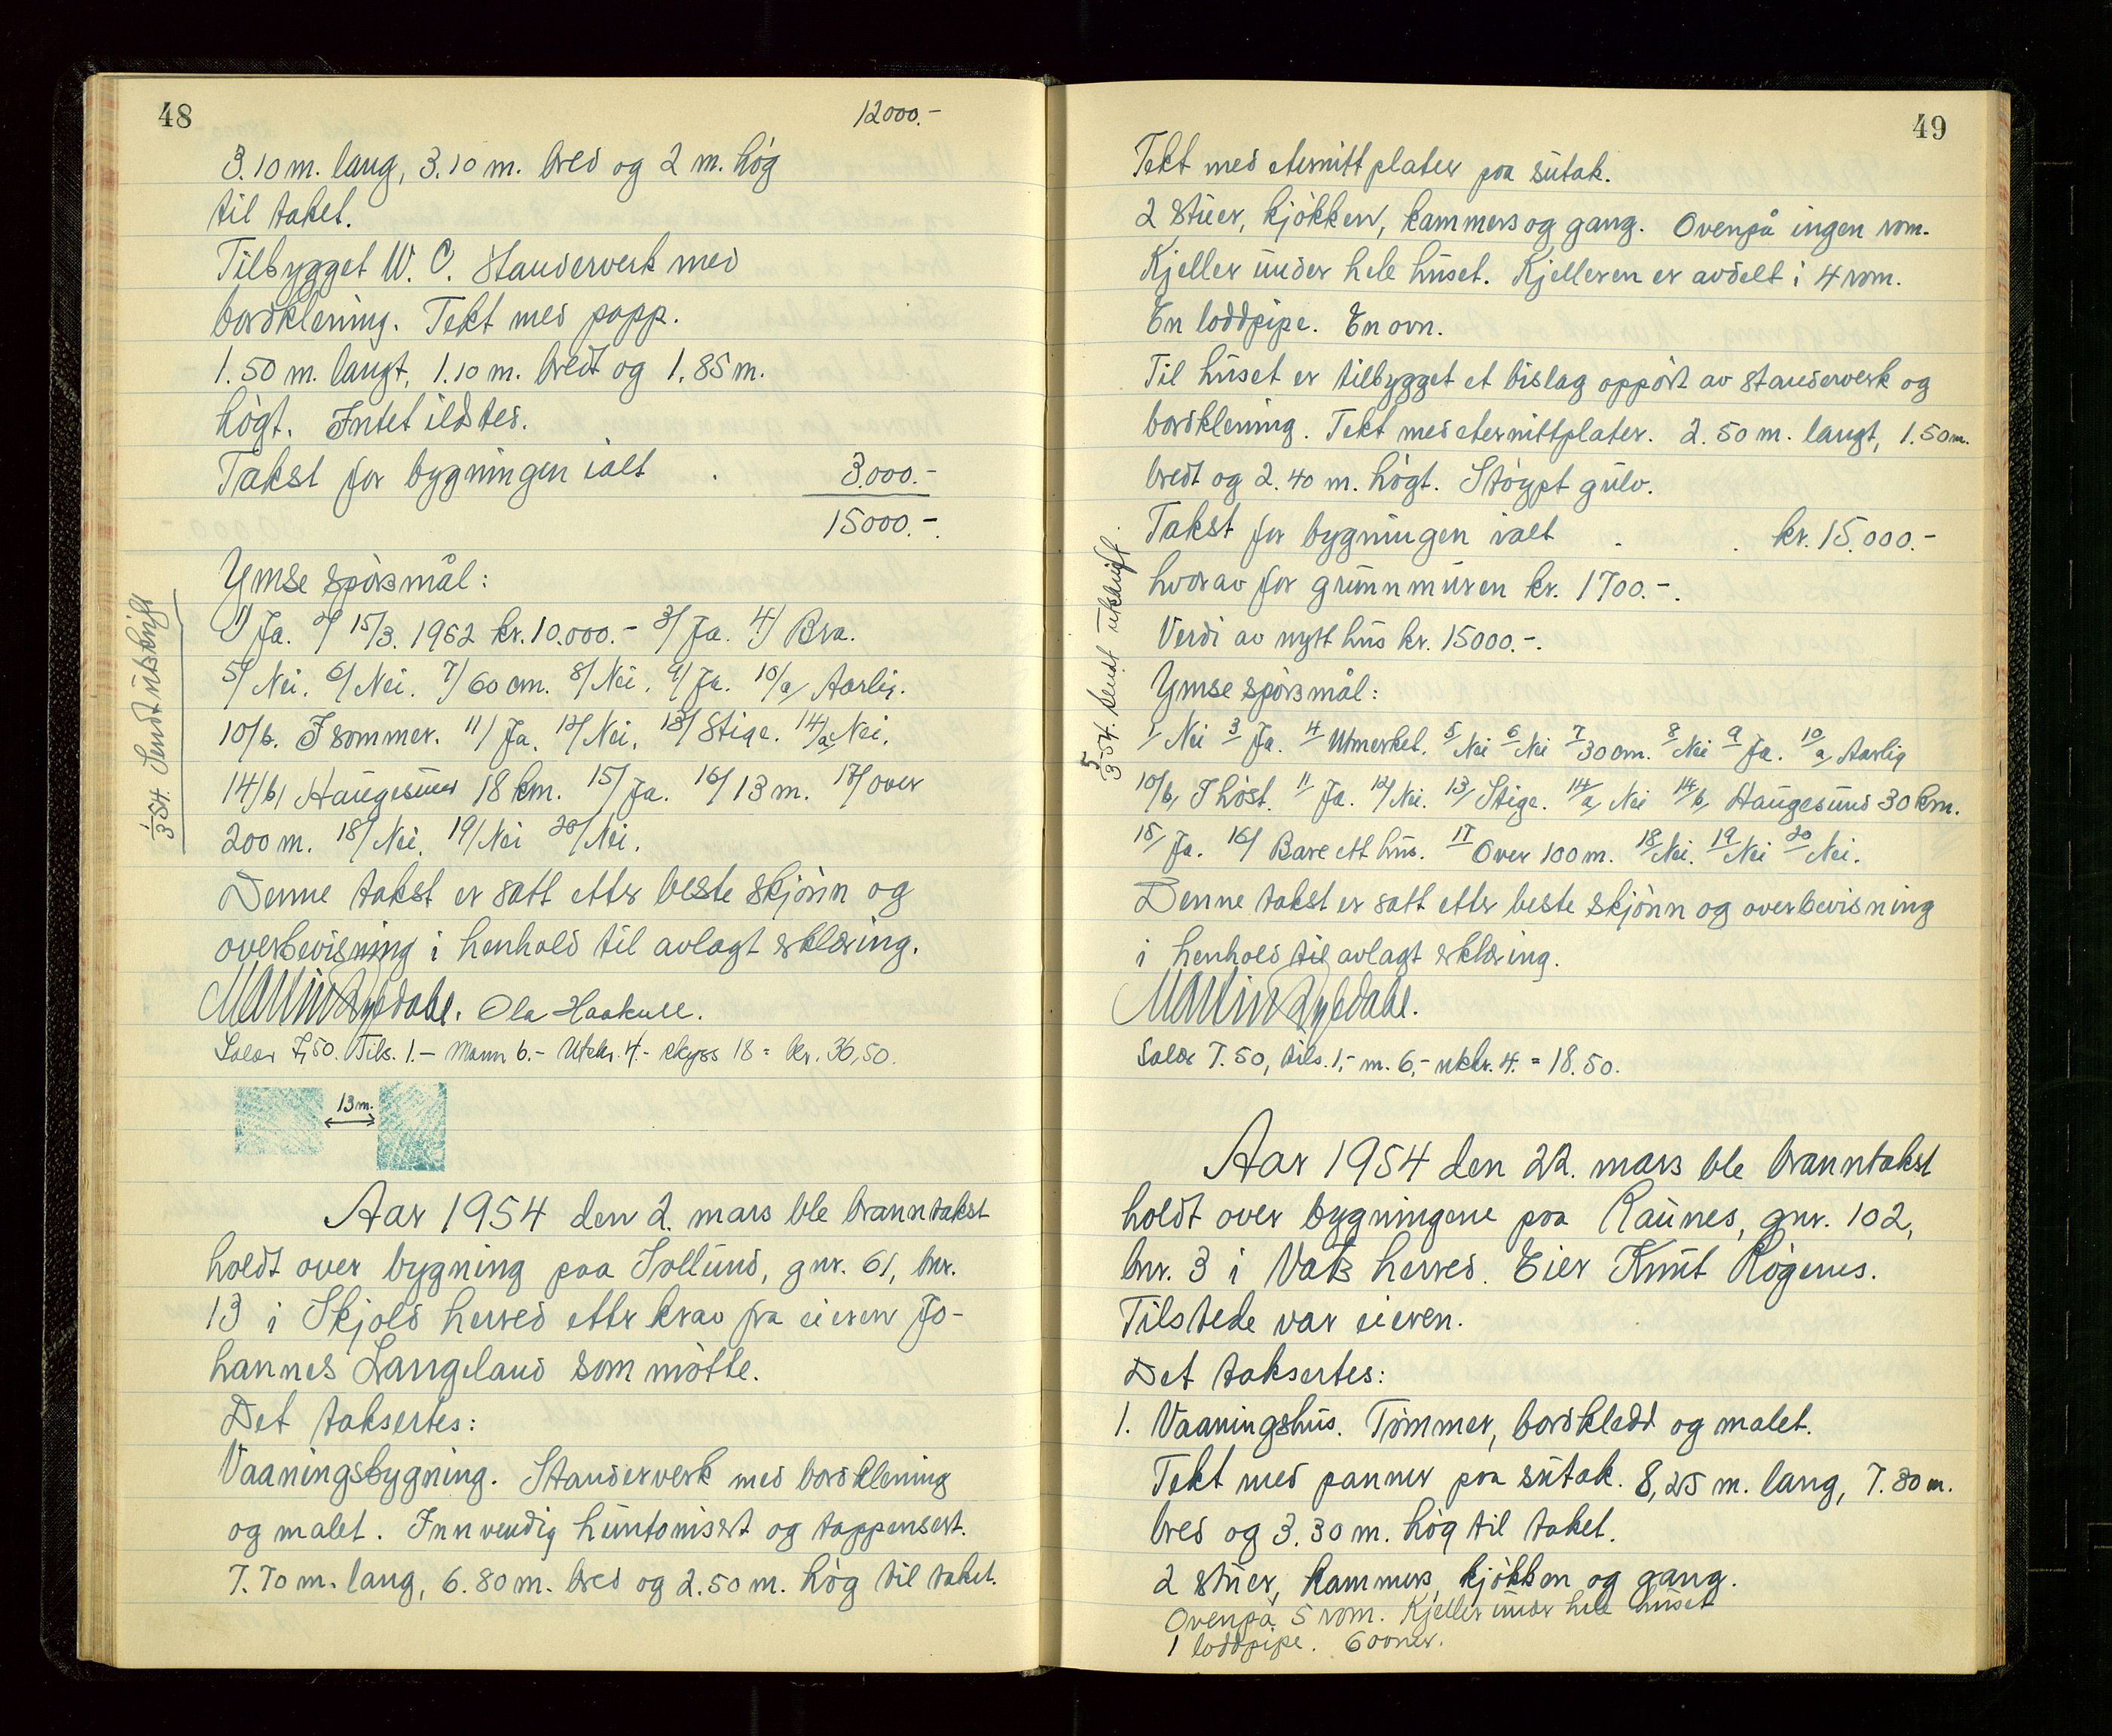 48
12000.-
3.10 m. lang, 3.10 m. bred og 2 m. høg
til taket.
Tilbygget W. C. Standerverk med
bordklening. Tekt med papp.
1.50 m. langt, 1.10 m. bredt og 1.85 m.
høgt. Intet ildsted.
Takst for bygningen ialt . 3.000.-
15000.-
Ymse spørsmål:
1/ Ja. 2/ 15/3. 1952 kr. 10.000.- 3/ Ja. 4/ Bra.
5/ Nei. 6/ Nei. 7/ 60 cm. 8/ Nei. 9/ Ja. 10/a/ Aarlig.
10/b. I sommer. 11/ Ja. 12/ Nei. 13/ Stige. 14/a/ Nei.
14/b/ Haugesund 18 km. 15/ Ja. 16/ 13 m. 17/ over
200 m. 18/ Nei. 19/ Nei 20/ Nei.
Denne takst er satt etter beste skjønn og
overbevisning i henhold til avlagt erklæring.
Martin Rygdahl. Ola Haakull.
Salær 7,50. Tils. 1.- Mann 6.- Utskr. 4.- skyss 18 = kr. 36,50.
13 m.
1/3 54. Sendt utskrift
Aar 1954 den 2. mars ble branntakst
holdt over bygning paa Sollund, gnr. 61, bnr.
13 i Skjold herred etter krav fra eieren Jo-
hannes Langeland som møtte.
Det taksertes:
Vaaningsbygning. Standerverk med bordklening
og malet. Innvendig huntonisert og tappensert.
7.70 m. lang, 6.80 m. bred og 2.50 m. høg til taket.
49
Tekt med eternittplater paa sutak.
2 stuer, kjøkken, kammers og gang. Ovenpå ingen rom.
Kjeller under hele huset. Kjelleren er avdelt i 4 rom.
En loddpipe. En ovn.
Til huset er tilbygget et bislag oppørt av standerverk og
bordklening. Tekt med eternittplater. 2.50 m. langt, 1.50 m.
bredt og 2.40 m. høgt. Støypt gulv.
Takst for bygningen ialt . . kr. 15.000.-
hvorav for grunnmuren kr. 1700.-.
Verdi av nytt hus kr. 15000.-.
Ymse spørsmål:
1/ Nei 3/ Ja. 4/ Utmerket. 5/ Nei 6/ Nei 7/ 30 cm. 8/ Nei 9/ Ja. 10/a/ Aarlig
10/b/ I høst. 11/ Ja. 12/ Nei. 13/ Stige. 14/a/ Nei 14/b/ Haugesund 30 km.
15/ Ja. 16/ Bare ett hus. 17/ Over 100 m. 18/ Nei. 19/ Nei 20/ Nei.
Denne takst er satt etter beste skjønn og overbevisning
i henhold til avlagt erklæring.
Martin Rygdahl.
Salær 7.50, tils. 1,- m. 6,- utskr. 4. = 18.50.
5/3 54. Sendt utskrift.
Aar 1954 den 22. mars ble branntakst
holdt over bygningene paa Raunes, gnr. 102,
bnr. 3 i Vats herred. Eier Knut Røgenes.
Tilstede var eieren.
Det taksertes:
1. Vaaningshus. Tømmer, bordkledd og malet.
Tekt med panner paa sutak. 8,25 m. lang, 7.30 m.
bred og 3.30 m. høg til taket.
2 stuer, kammers, kjøkken og gang.
Ovenpå 5 rom. Kjeller under hele huset
1 loddpipe. 6 ovner.